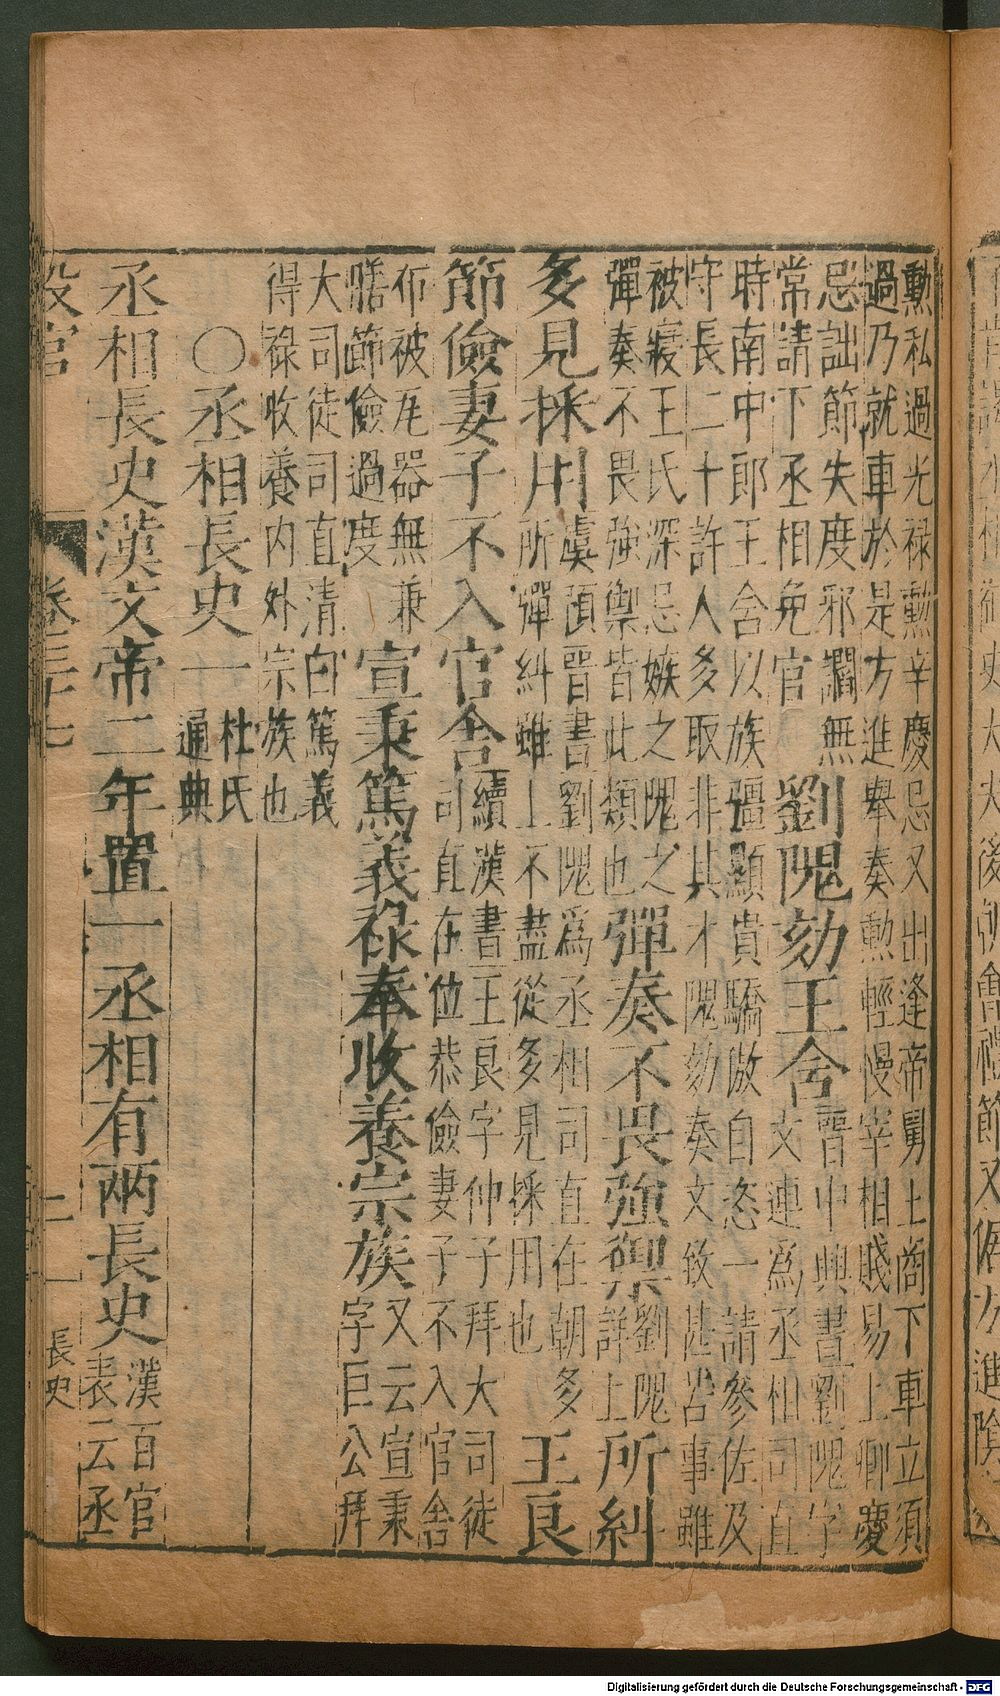 勲私過光禄勲辛慶忌又出逢帝舅上商下車立須
過乃就車於是方進舉奏勲輕慢宰相賤易上卿慶
忌詘節失度邪讇無
常請下丞相免官
劉隗劾王舎
晋中興書劉隗字
文連爲丞相司直
時南中郎王舎以族彊顯貴驕傲自恣一請參佐及
守長二十許人多取非其才隗劾奏文致甚苦事雖
被寢王氏深忌嫉之隗之
彈奏不畏強禦皆此類也
彈奏不畏強禦
劉隗
詳上
所糾
多見採用
虞預晋書劉隗爲丞相司直在朝多
所彈糾雖上不盡從多見採用也
王良
節儉妻子不入官舎
續漢書王良字仲子拜大司徒
司直在位恭儉妻子不入官舎
布被瓦器無兼
膳節儉過度
宣秉篤義禄奉收養宗族
又云宣秉
字巨公拜
大司徒司直清白篤義
得禄收養内外宗族也
〇丞相長史一
杜氏
通典
丞相長史漢文帝二年置一丞相有兩長史
漢百官
表云丞
設官
卷三十七
二
長史
Digitalisierung gefördert durch die Deutsche Forschungsgemeinschaft - DFG